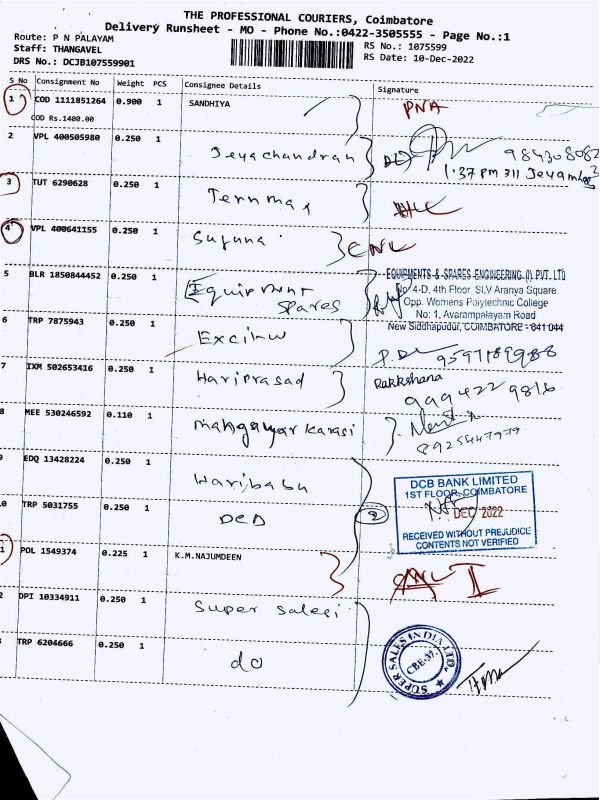 THE PROFESSIONAL COURIERS, Coimbatore
Delivery Runsheet - MO - Phone No.:0422-3505555 - Page No.:1
Route: P N PALAYAM
Staff: THANGAVEL
DRS No.: DCJB107559901
RS No.: 1075599
RS Date: 10-Dec-2022
S No Consignment No Weight PCS Consignee Details Signature
1 COD 1111851264 0.900 1 SANDHIYA PNA
COD Rs.1400.00
2 VPL 400505980 0.250 1 Jeyachandran
1.37 PM
3 TUT 6290628 0.250 1
4 VPL 400641155 0.250 1
5 BLR 1850844452 0.250 1 Equipment
Spares
EQUIPMENTS & SPARES ENGINEERING (I) PVT. LTD
No 4-D, 4th Floor, SLV Aranya Square
Opp. Womens Polytechnic College
No: 1, Avarampalayam Road
New Siddhapudur, COIMBATORE - 641 044
6 TRP 7875943 0.250 1
7 IXM 502653416 0.250 1 Hariprasad Rakkshana
999422 9816
8 MEE 530246592 0.110 1
EDQ 13428224 0.250 1 Haribabu
DCB BANK LIMITED
1ST FLOOR, COIMBATORE
DEC 2022
RECEIVED WITHOUT PREJUDICE
CONTENTS NOT VERIFIED
0 TRP 5031755 0.250 1 DCD 2
1 POL 1549374 0.225 1 K.M.NAJUMDEEN
2 DPI 10334911 0.250 1 Super Sales
TRP 6204666 0.250 1 do
SUPER SALES INDIA LTD.
CBE-37.